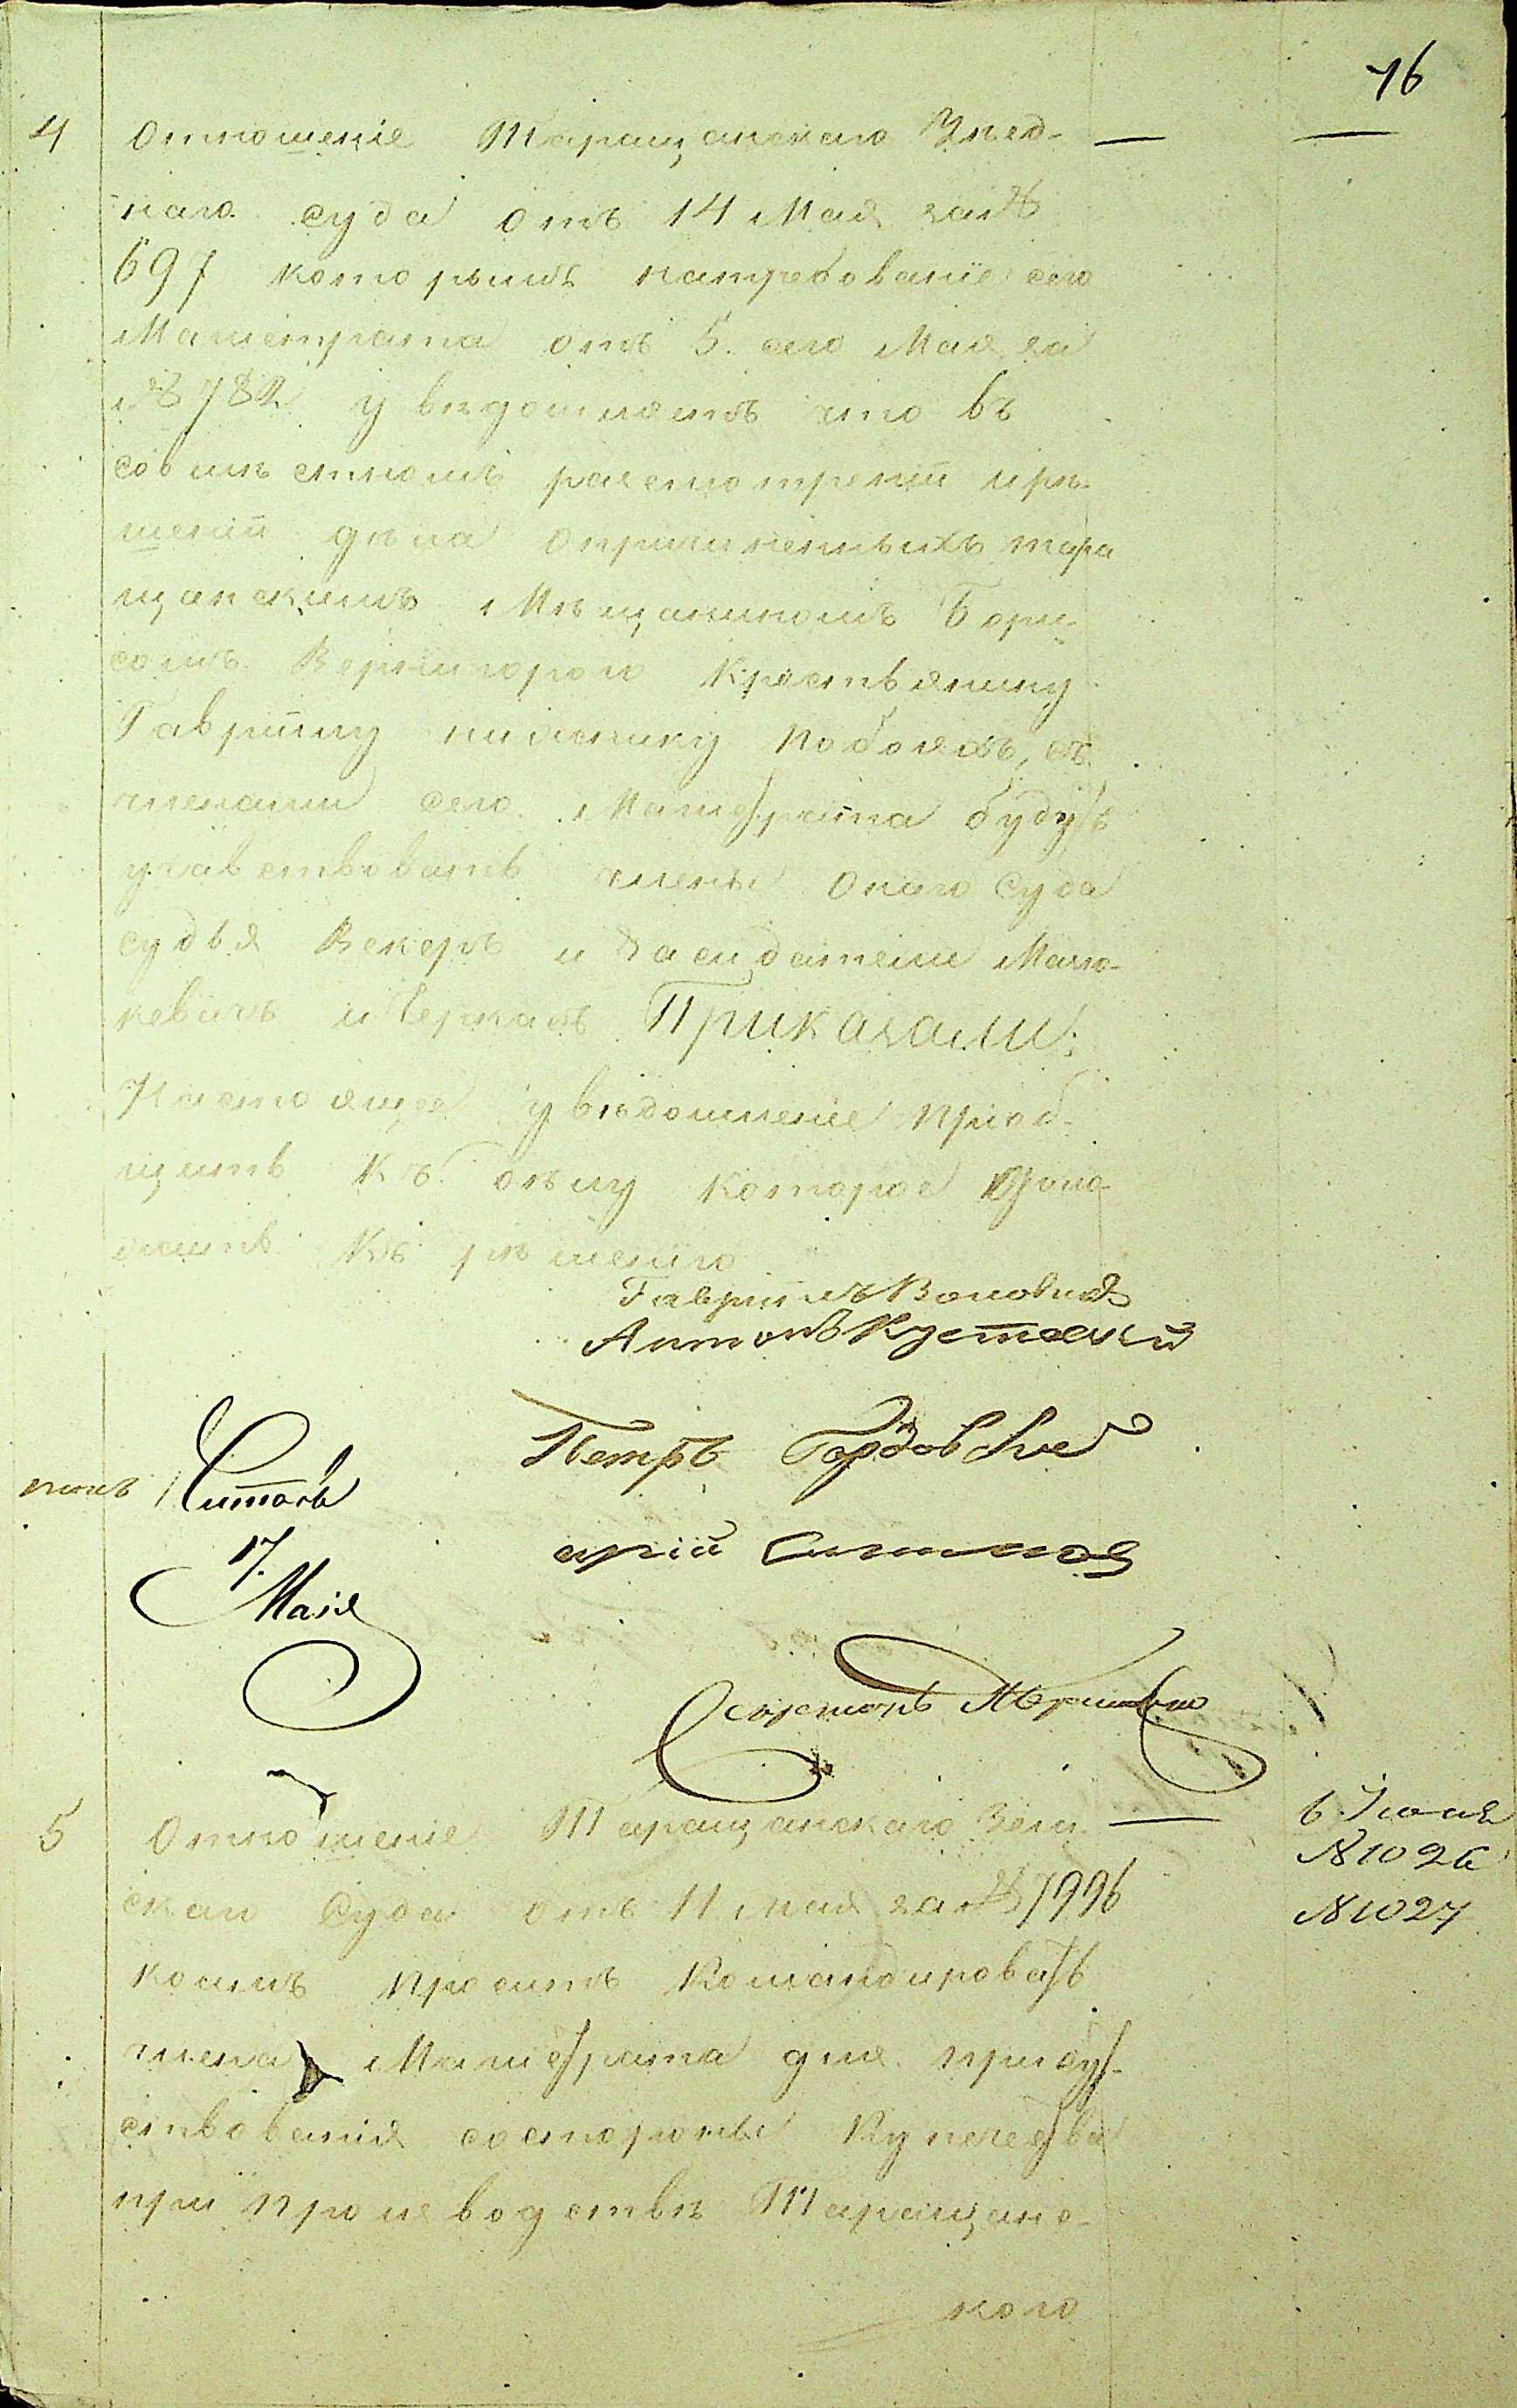 76
4 Отношеніе Таращанскаго Уѣзд-
наго суда отъ 14 Мая за №
697 которымъ натребованіе сего
Магистрата отъ 5. сего Мая за
№ 782 увѣдомляетъ что въ
совмѣстномъ разсмотреніи ирѣ-
шеніи дѣла опричиненныхъ тара
щанскимъ Мѣщаниномъ Бори-
сомъ Вернигорою Крестьянину
Гавріилу побояхъ, съ
членами сего Магистрата будутъ
участвовать члены онаго Суда
судья Векеръ и Засидатели
и Черкасъ Приказали:
Настоящее увѣдомленіе пріоб-
щить къ дѣлу которое доло-
жить къ рѣшенію
Гавріилъ
Антонъ
Петръ
Читалъ
17.
Мая
Секретарь
5 Отношеніе Таращанскаго Зем-
скаго Суда отъ 11 мая за № 7996
коимъ проситъ Командировать
члена Магистрата для присут-
ствованія состороны Купечества
при производствѣ Таращанс-
кого
6 Іюня
№ 1026
№ 1027